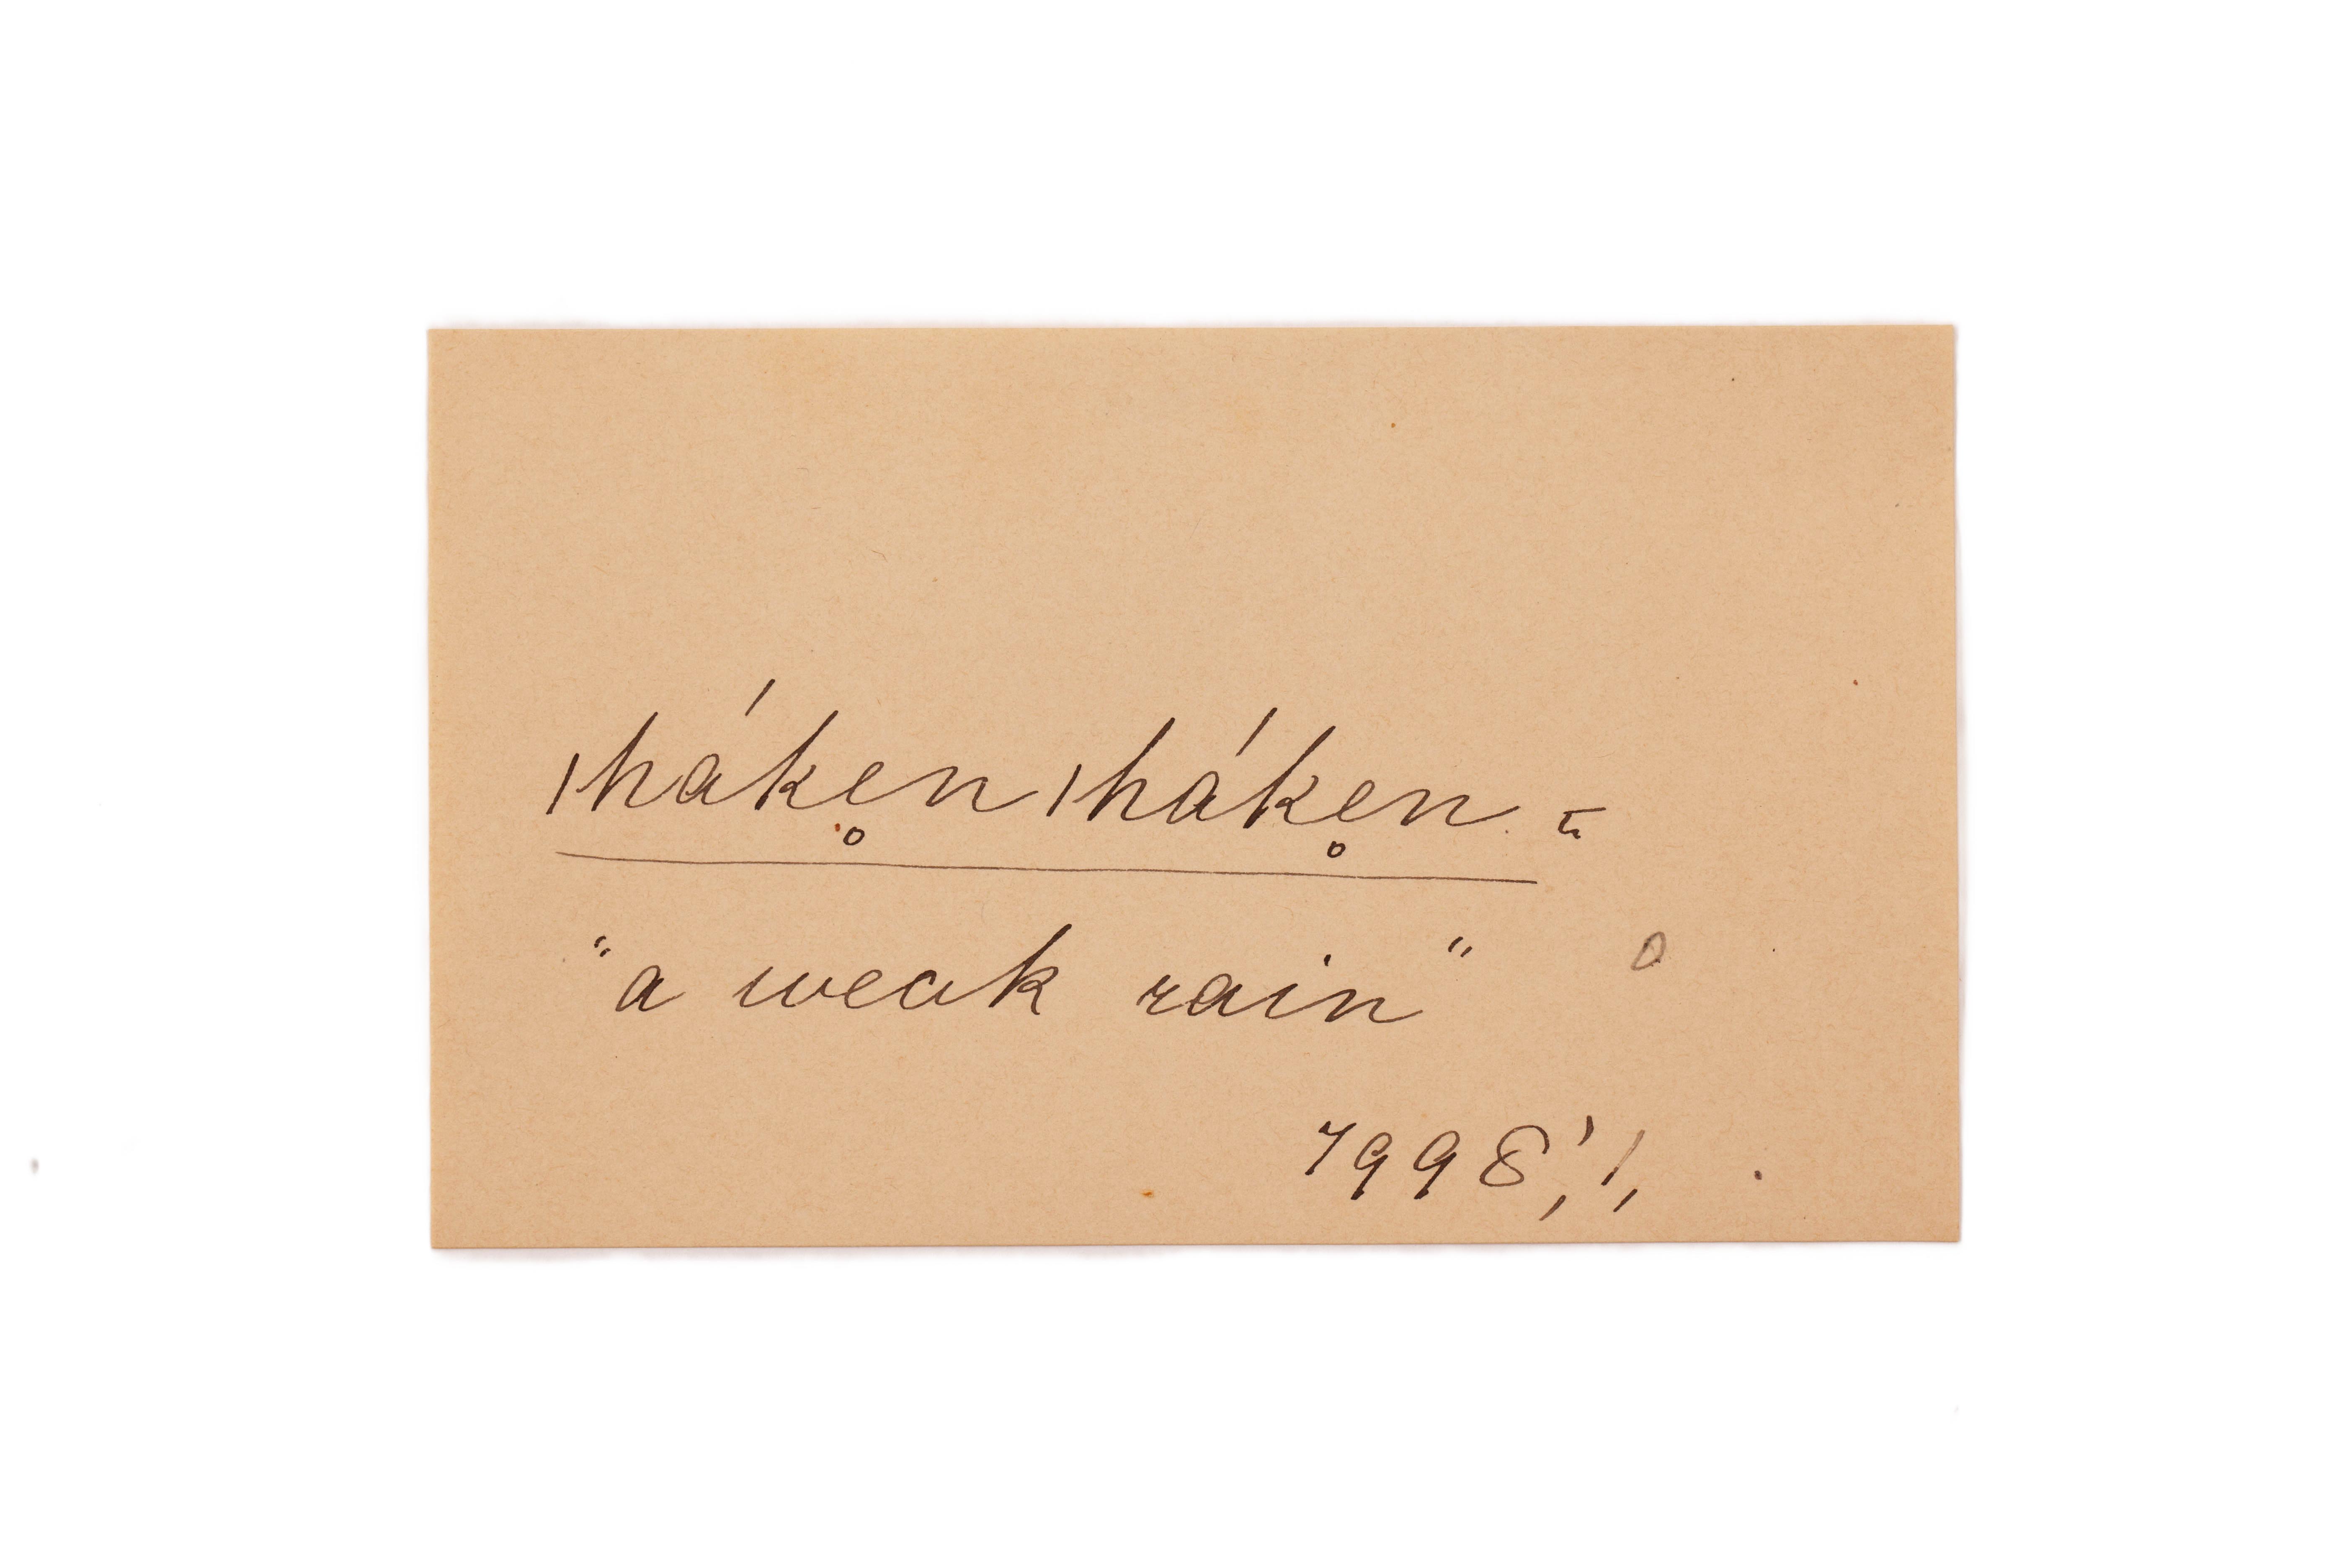 |háke̥n|háke̥n =
"a weak rain"
7998,'1,